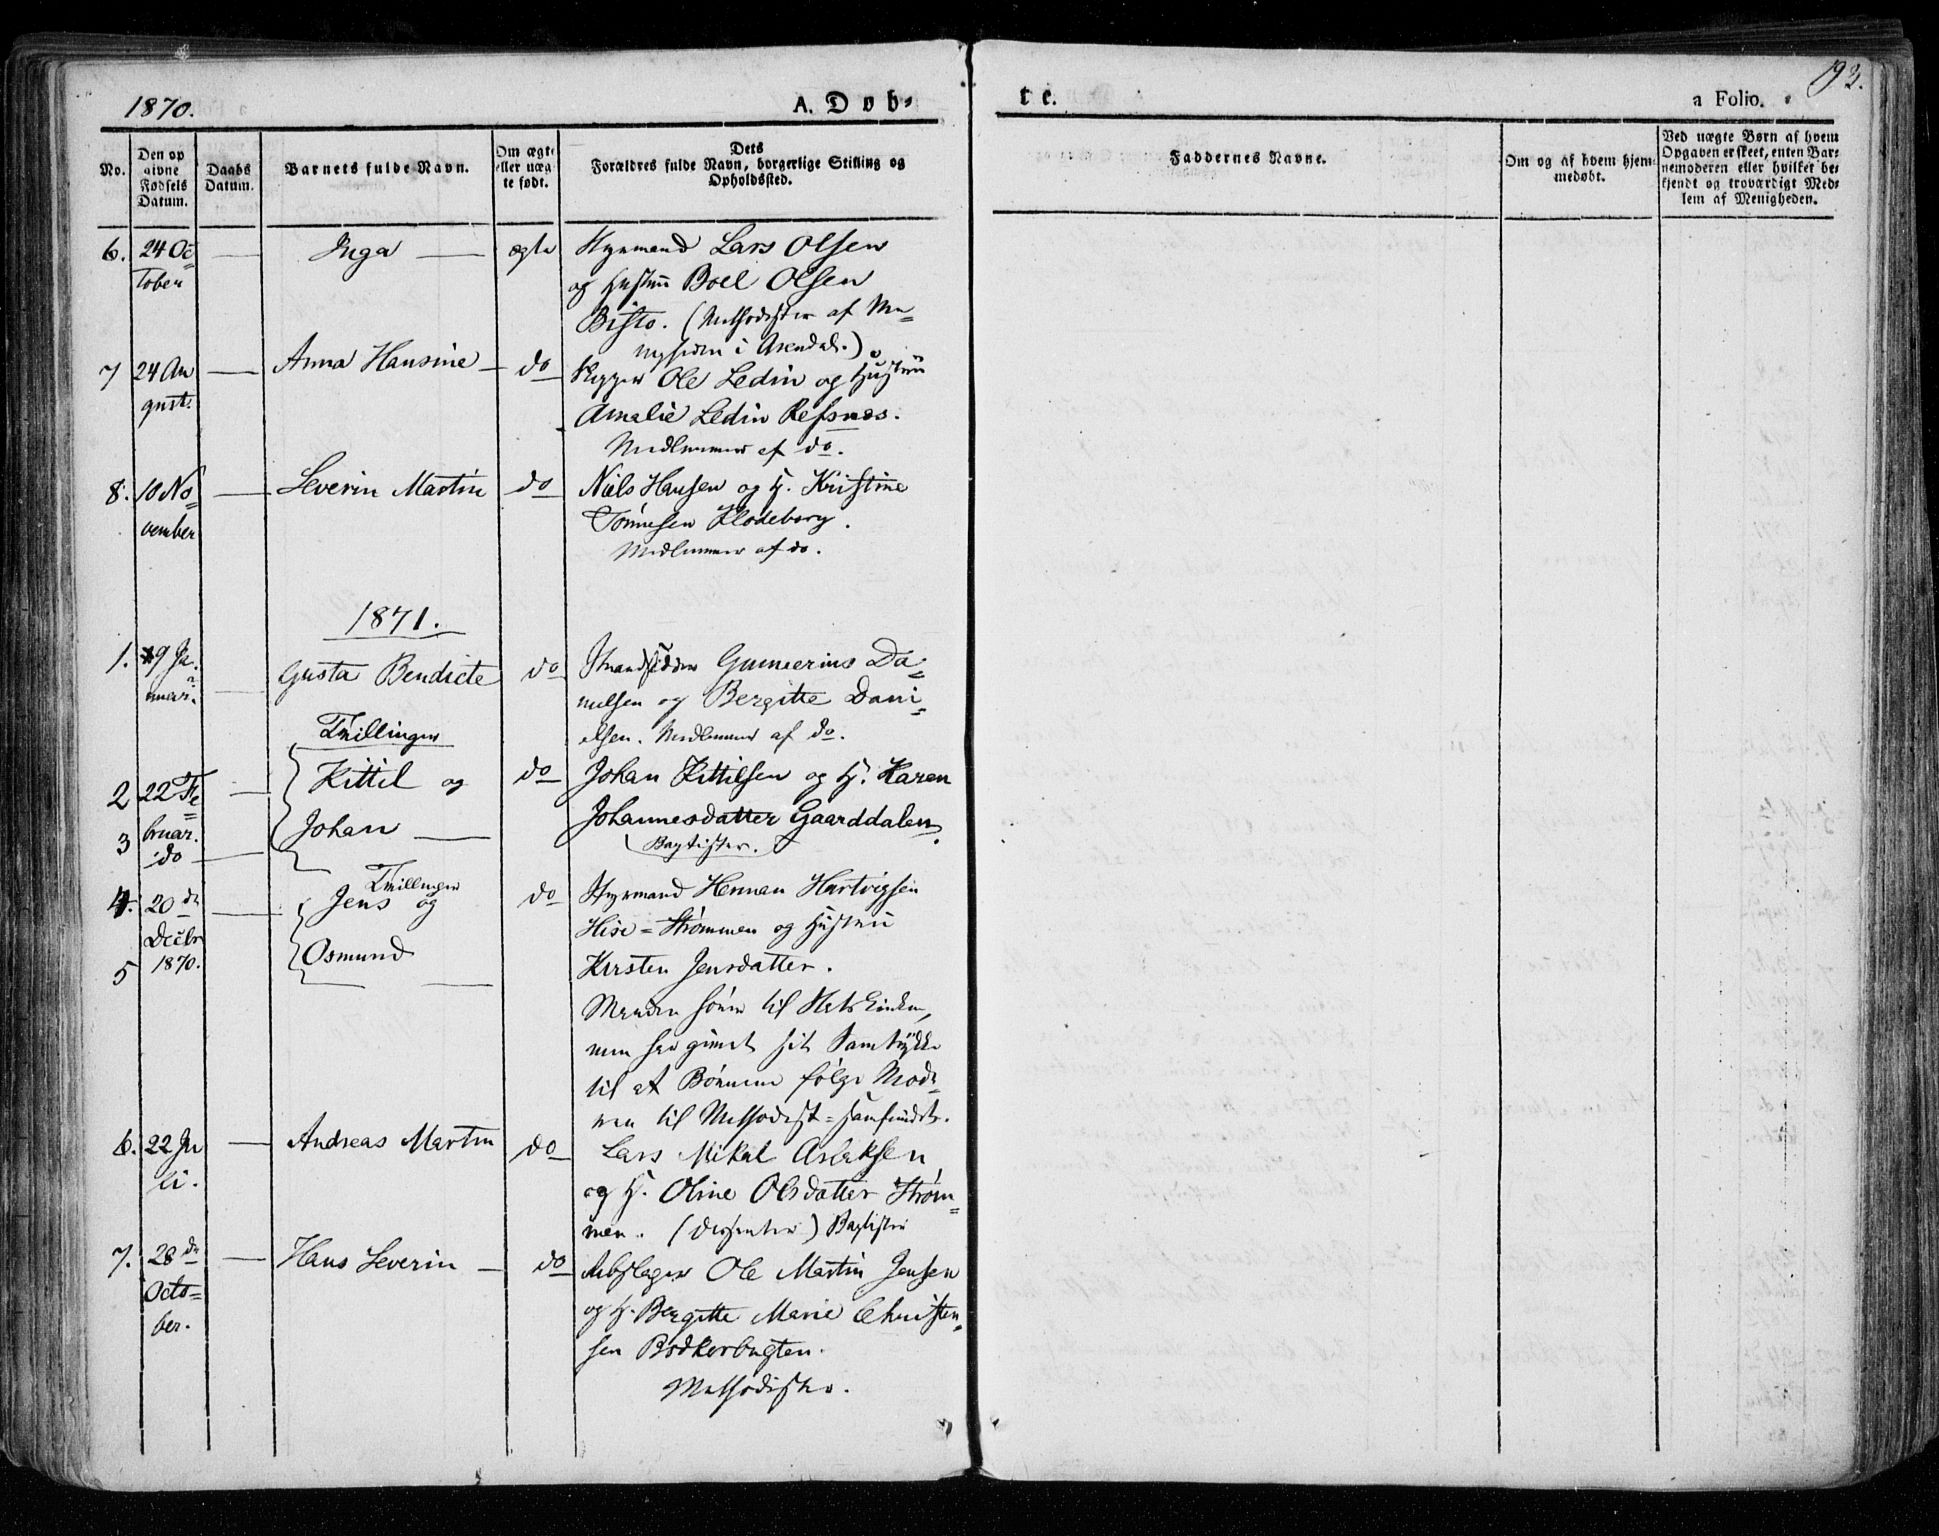 1870.
A. Døb-
te.
a Folio.
93.
No.
Den op
givne
Fødsels
Datum.
Daabs
Datum.
Barnets fulde Navn.
Om ægte
eller uæg-
te født.
Dets
Forældres fulde Navn, borgerlige Stilling og
Opholdssted.
Faddernes Navne.
Om og af hvem hjem-
medøbt.
Ved uægte Børn af hvem
Opgaven er skeet, enten Bar-
nemoderen eller hvilket be-
kjendt og troværdigt Med-
lem af Menigheden.
6. 24 Oc= Inga ægte Styrmand Lars Olsen
tober og Hustru Boel Olsen
Bisto. (Methodister af Me=
nigheden i Arendal.)
7 24 Au Anna Hansine do Skipper Ole Ledin og Hustru
gust. Amalie Ledin Refsnæs.
Medlemmer af do.
8. 10 No= Severin Martin do Niels Hansen og H. Kristine
vember Tønnesen Klodeborg.
Medlemmer af do.
1871.
1. 9 Ja. Gusta Bendicte do Strandsidder Gunnerius Da=
nuar. nielsen og Bergitte Dani=
elsen. Medlemmer af do.
Tvillinger
2 22 Fe= Kittil og do Johan Kittilsen og H. Karen
3 bruar. Johan Johannesdatter Gaarddalen.
do Baptister.
Tvillinger
4. 20de Jens og do Styrmand Herman Hartvigsen
Decbr Hisø=Strømmen og Hustru
5 1870. Osmund Kirsten Jensdatter.
Manden hører til Statskirken,
men har givet sit Samtykke
til at Børnene følge Mode=
ren til Methodist=Samfundet.
6. 22 Ju Andreas Martin do Lars Mikal Aslaksen
li. og H. Oline Olsdatter Strøm=
men. (Dissenter) Baptister
7. 28de Hans Severin do Rebslager Ole Martin Jensen
Octo= og H. Bergitte Marie Christen=
ber. sen Bødkerbugten.
Methodister.